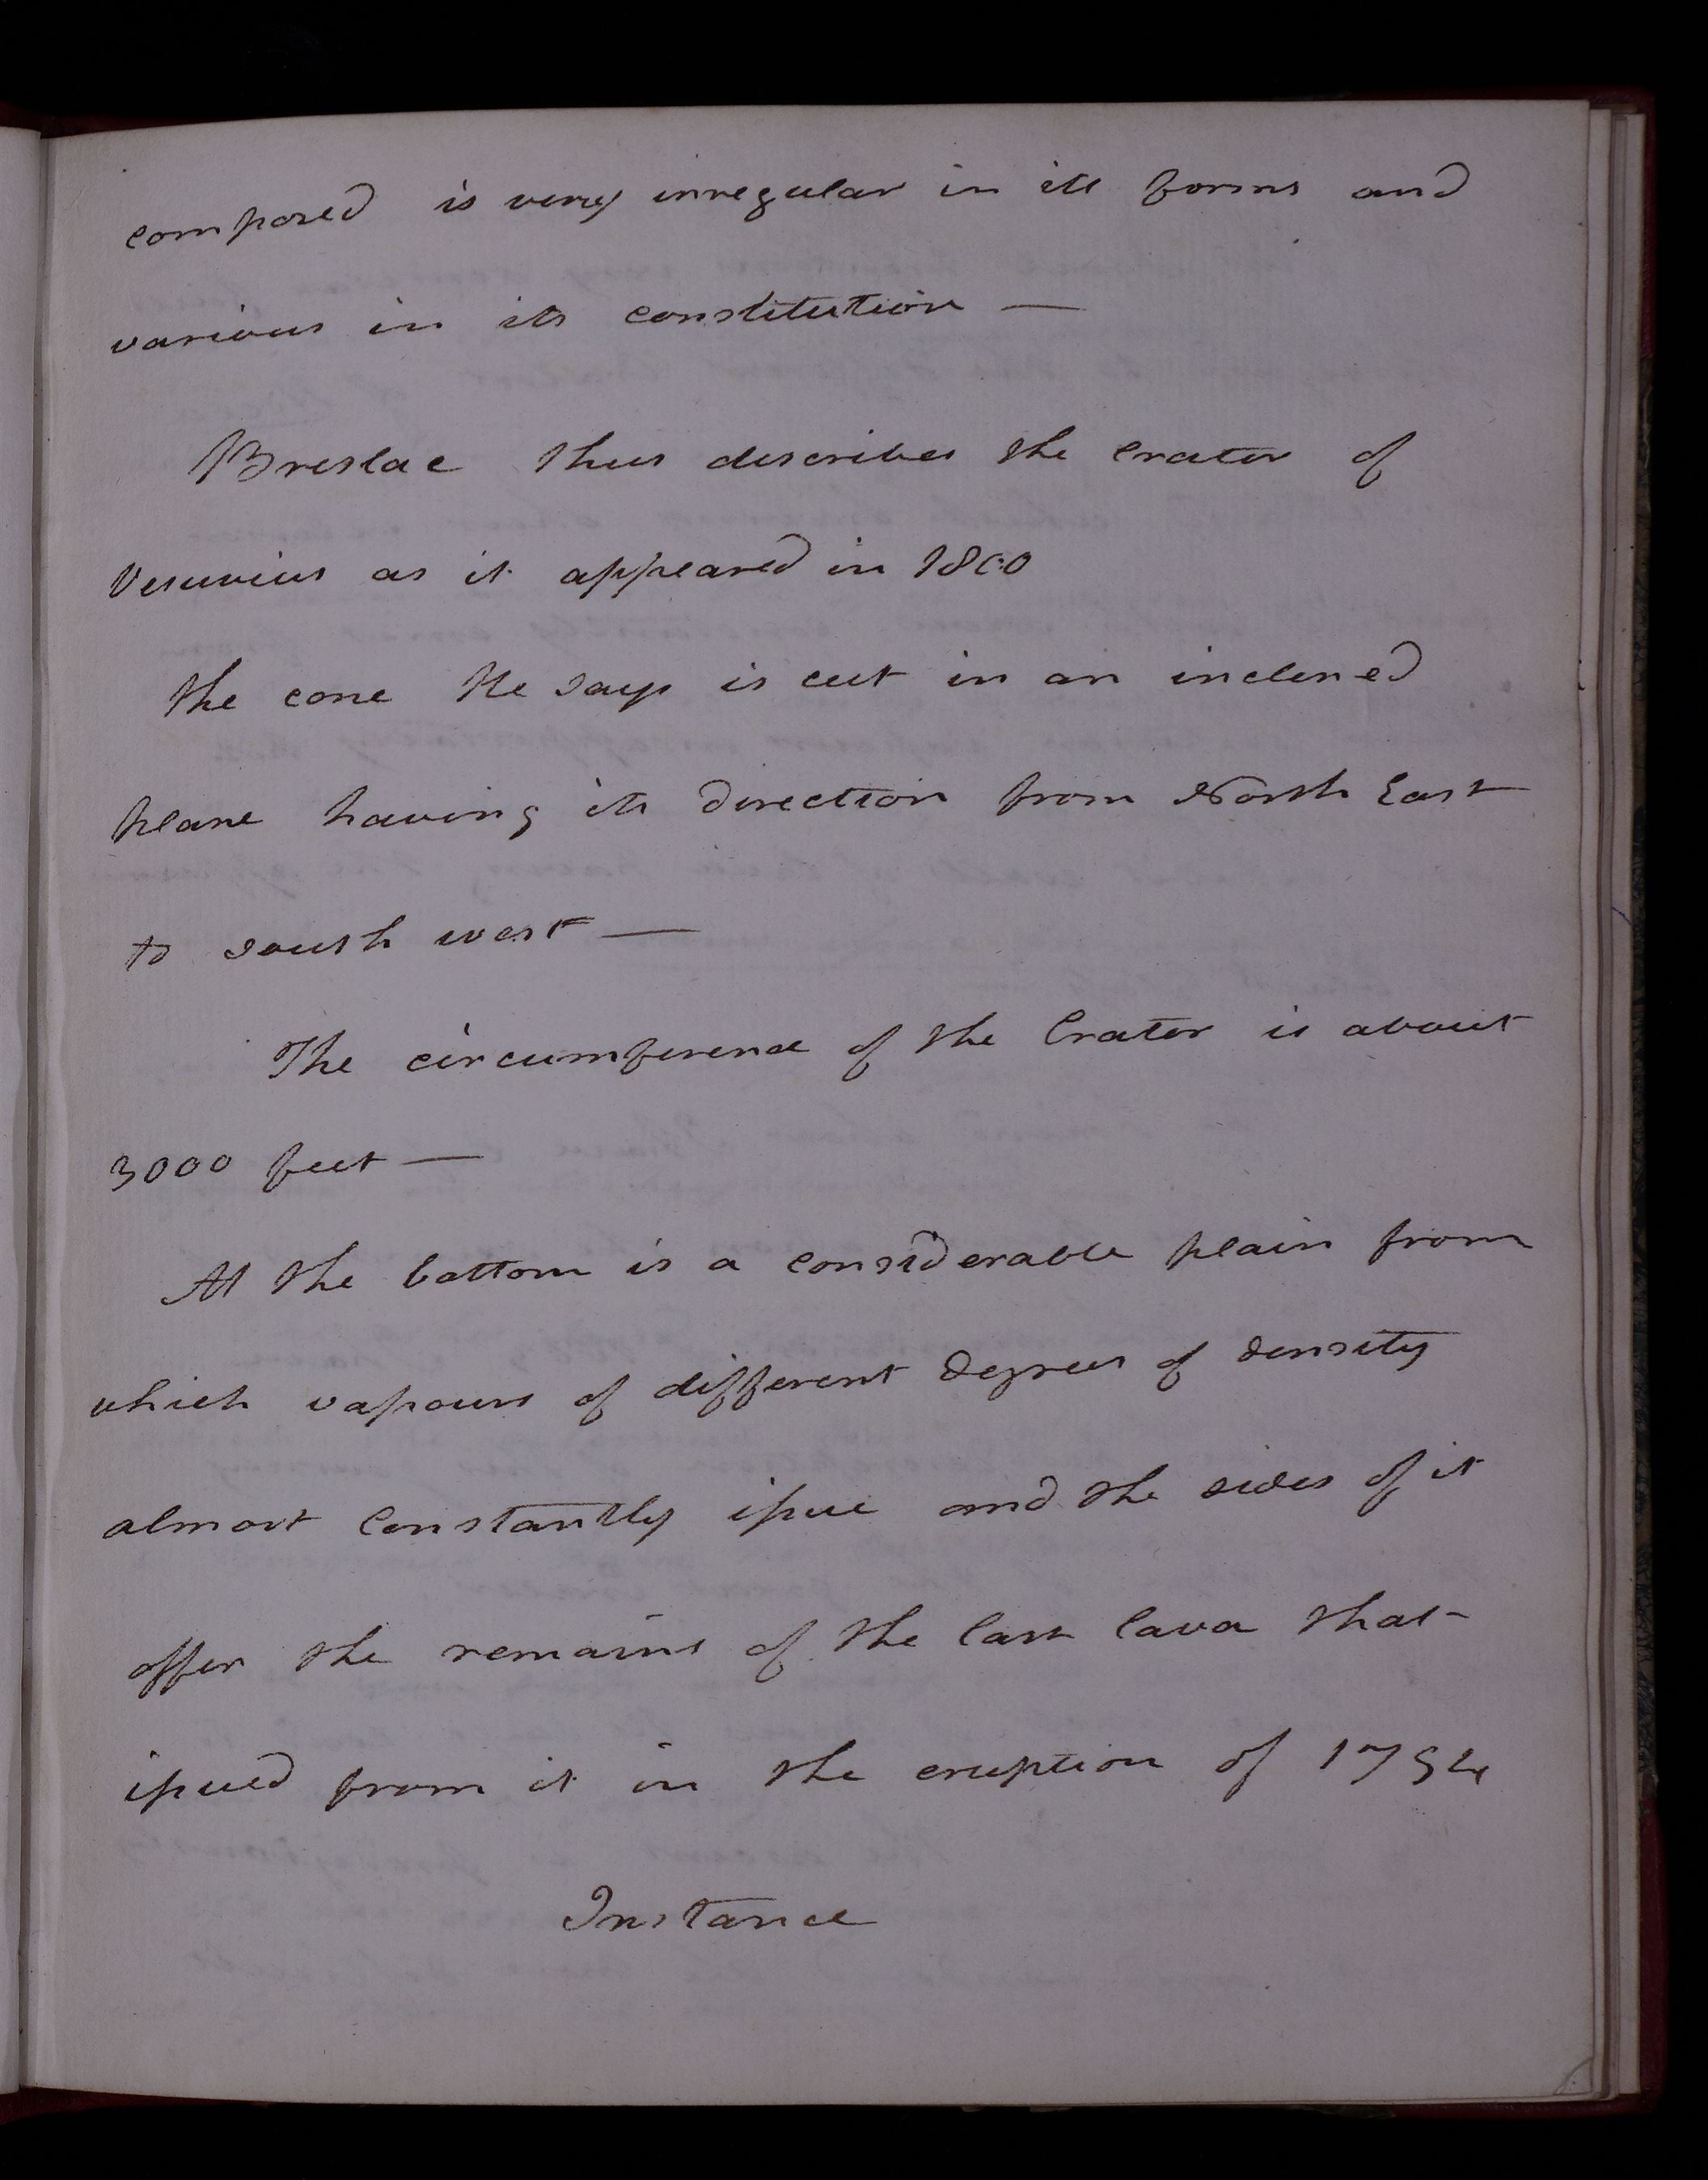 composed is very irregular in its forms and
various in its constitution —
Breslac thus describes the Crater of
Vesuvius as it appeared in 1800
The cone He says is cut in an inclined
plane having its direction from North East
to south west —
The circumference of the Crater is about
3000 feet —
At the bottom is a considerable plain from
which vapours of different degrees of density
almost constantly issue and the sides of it
offer the remains of the last lava that
issued from it in the eruption of 1794
Instance